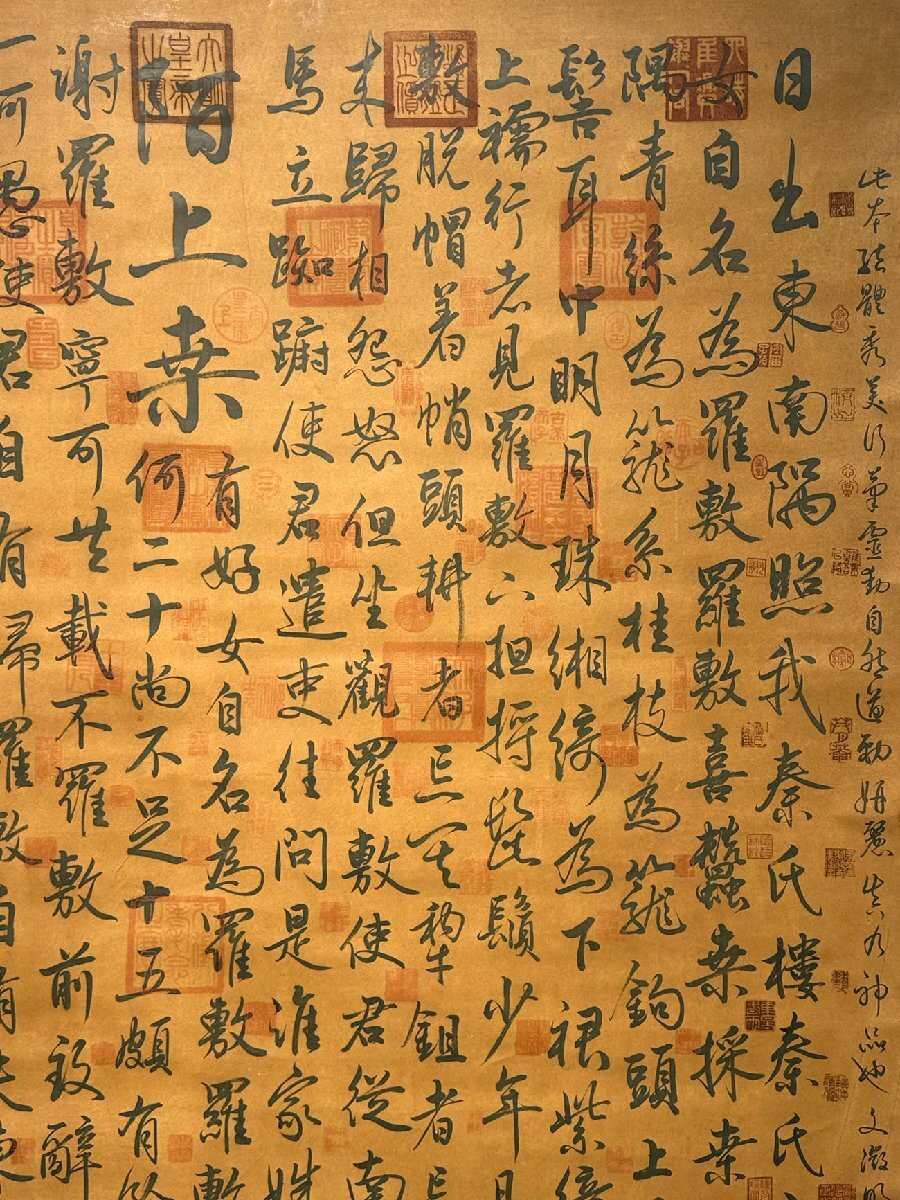 此本结體秀美行筆靈動自然遒勁妍麗真乃神品也文徵明
日出東南隅照我秦氏樓秦氏
女自名為羅敷羅敷喜蠶桑採桑
隅青絲為籠系桂枝為籠鉤頭上
髻耳中明月珠緗綺為下裙紫綺
上襦行者見羅敷下担捋髭鬚少年見
敷脫帽着帩頭耕者忘其犂鉏者忘
来歸相怨怒但坐觀羅敷使君從南
馬立踟躕使君遣吏往問是誰家姝
陌上桑
有好女自名為羅敷羅敷
何二十尚不足十五頗有
謝羅敷寧可共載不羅敷前致辭
一何愚使君自有婦羅敷自有夫東